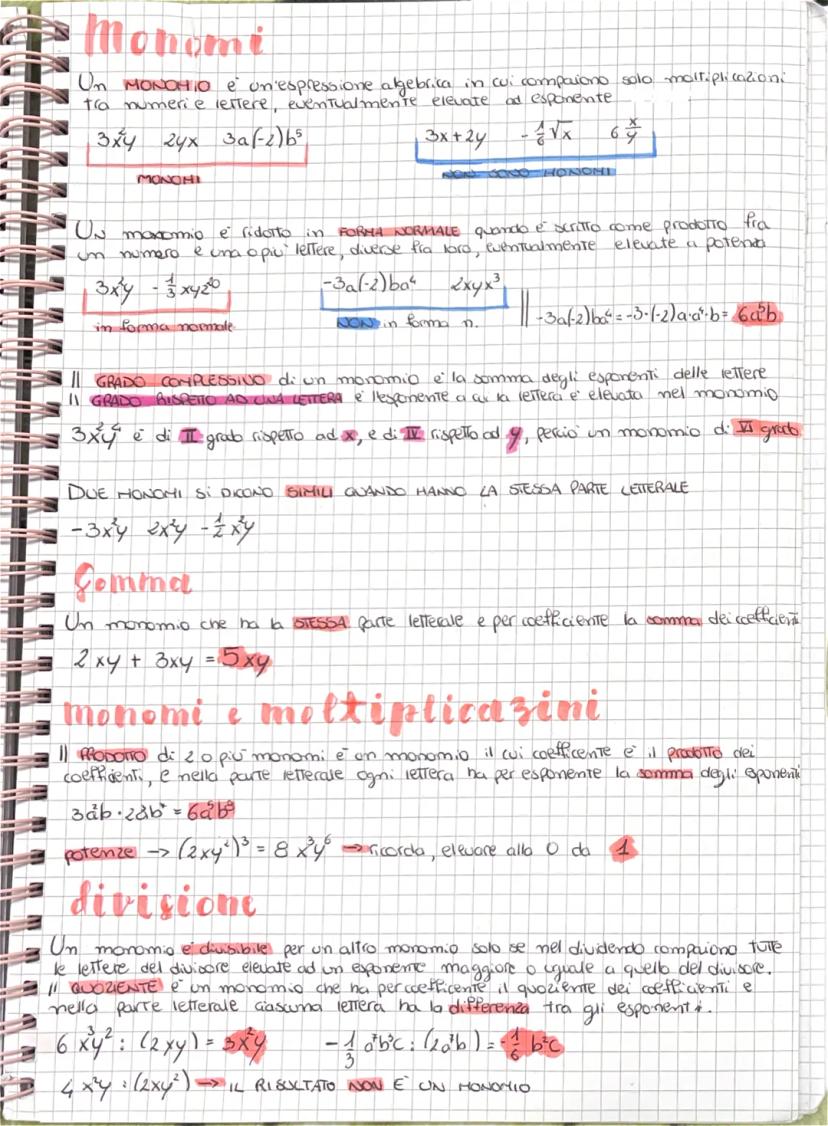 Monomi
Un MONOMIO è un'espressione algebrica in cui compaiono solo moltiplicazioni
tra numeri e lettere, eventualmente elevate ad esponente
3x²y 2yx 3a(-2)b⁵ 3x+2y -1/6√x 6 x/y
MONOMI NON SONO MONOMI
Un monomio è ridotto in FORMA NORMALE quando è scritto come prodotto fra
un numero e una o più lettere, diverse fra loro, eventualmente elevate a potenza
3x²y -1/3xyz²⁰ -3a(-2)ba⁴ 2xyx³
in forma normale NON in forma n. || -3a(-2)ba⁴=-3·(-2)a·a⁴·b= 6a⁵b
Il GRADO COMPLESSIVO di un monomio è la somma degli esponenti delle lettere
Il GRADO RISPETTO AD UNA LETTERA è l'esponente a cui la lettera è elevata nel monomio
3x²y⁴ è di II grado rispetto ad x, e di IV rispetto ad y, perciò un monomio di VI grado
DUE MONOMI SI DICONO SIMILI QUANDO HANNO LA STESSA PARTE LETTERALE
-3x²y 2x²y -1/2x²y
Somma
Un monomio che ha la STESSA parte letterale e per coefficiente la somma dei coefficienti
2xy + 3xy = 5xy
monomi e moltiplicazini
Il PRODOTTO di 2 o più monomi è un monomio il cui coefficente è il prodotto dei
coefficienti, e nella parte letterale ogni lettera ha per esponente la somma degli esponenti
3a²b · = 6a⁵
potenze → (2xy²)³ = 8x³y⁶ → ricorda, elevare alla 0 da 1
divisione
Un monomio è divisibile per un altro monomio solo se nel dividendo compaiono tutte
le lettere del divisore elevate ad un esponente maggiore o uguale a quello del divisore.
Il QUOZIENTE è un monomio che ha per coefficente il quoziente dei coefficienti e
nella parte letterale ciascuna lettera ha la differenza tra gli esponenti.
6x³y² : (2xy) = 3x²y -1/3a⁷b³c : (2a⁷b) = -1/6b²c
4x²y : (2xy²) → IL RISULTATO NON È UN MONOMIO